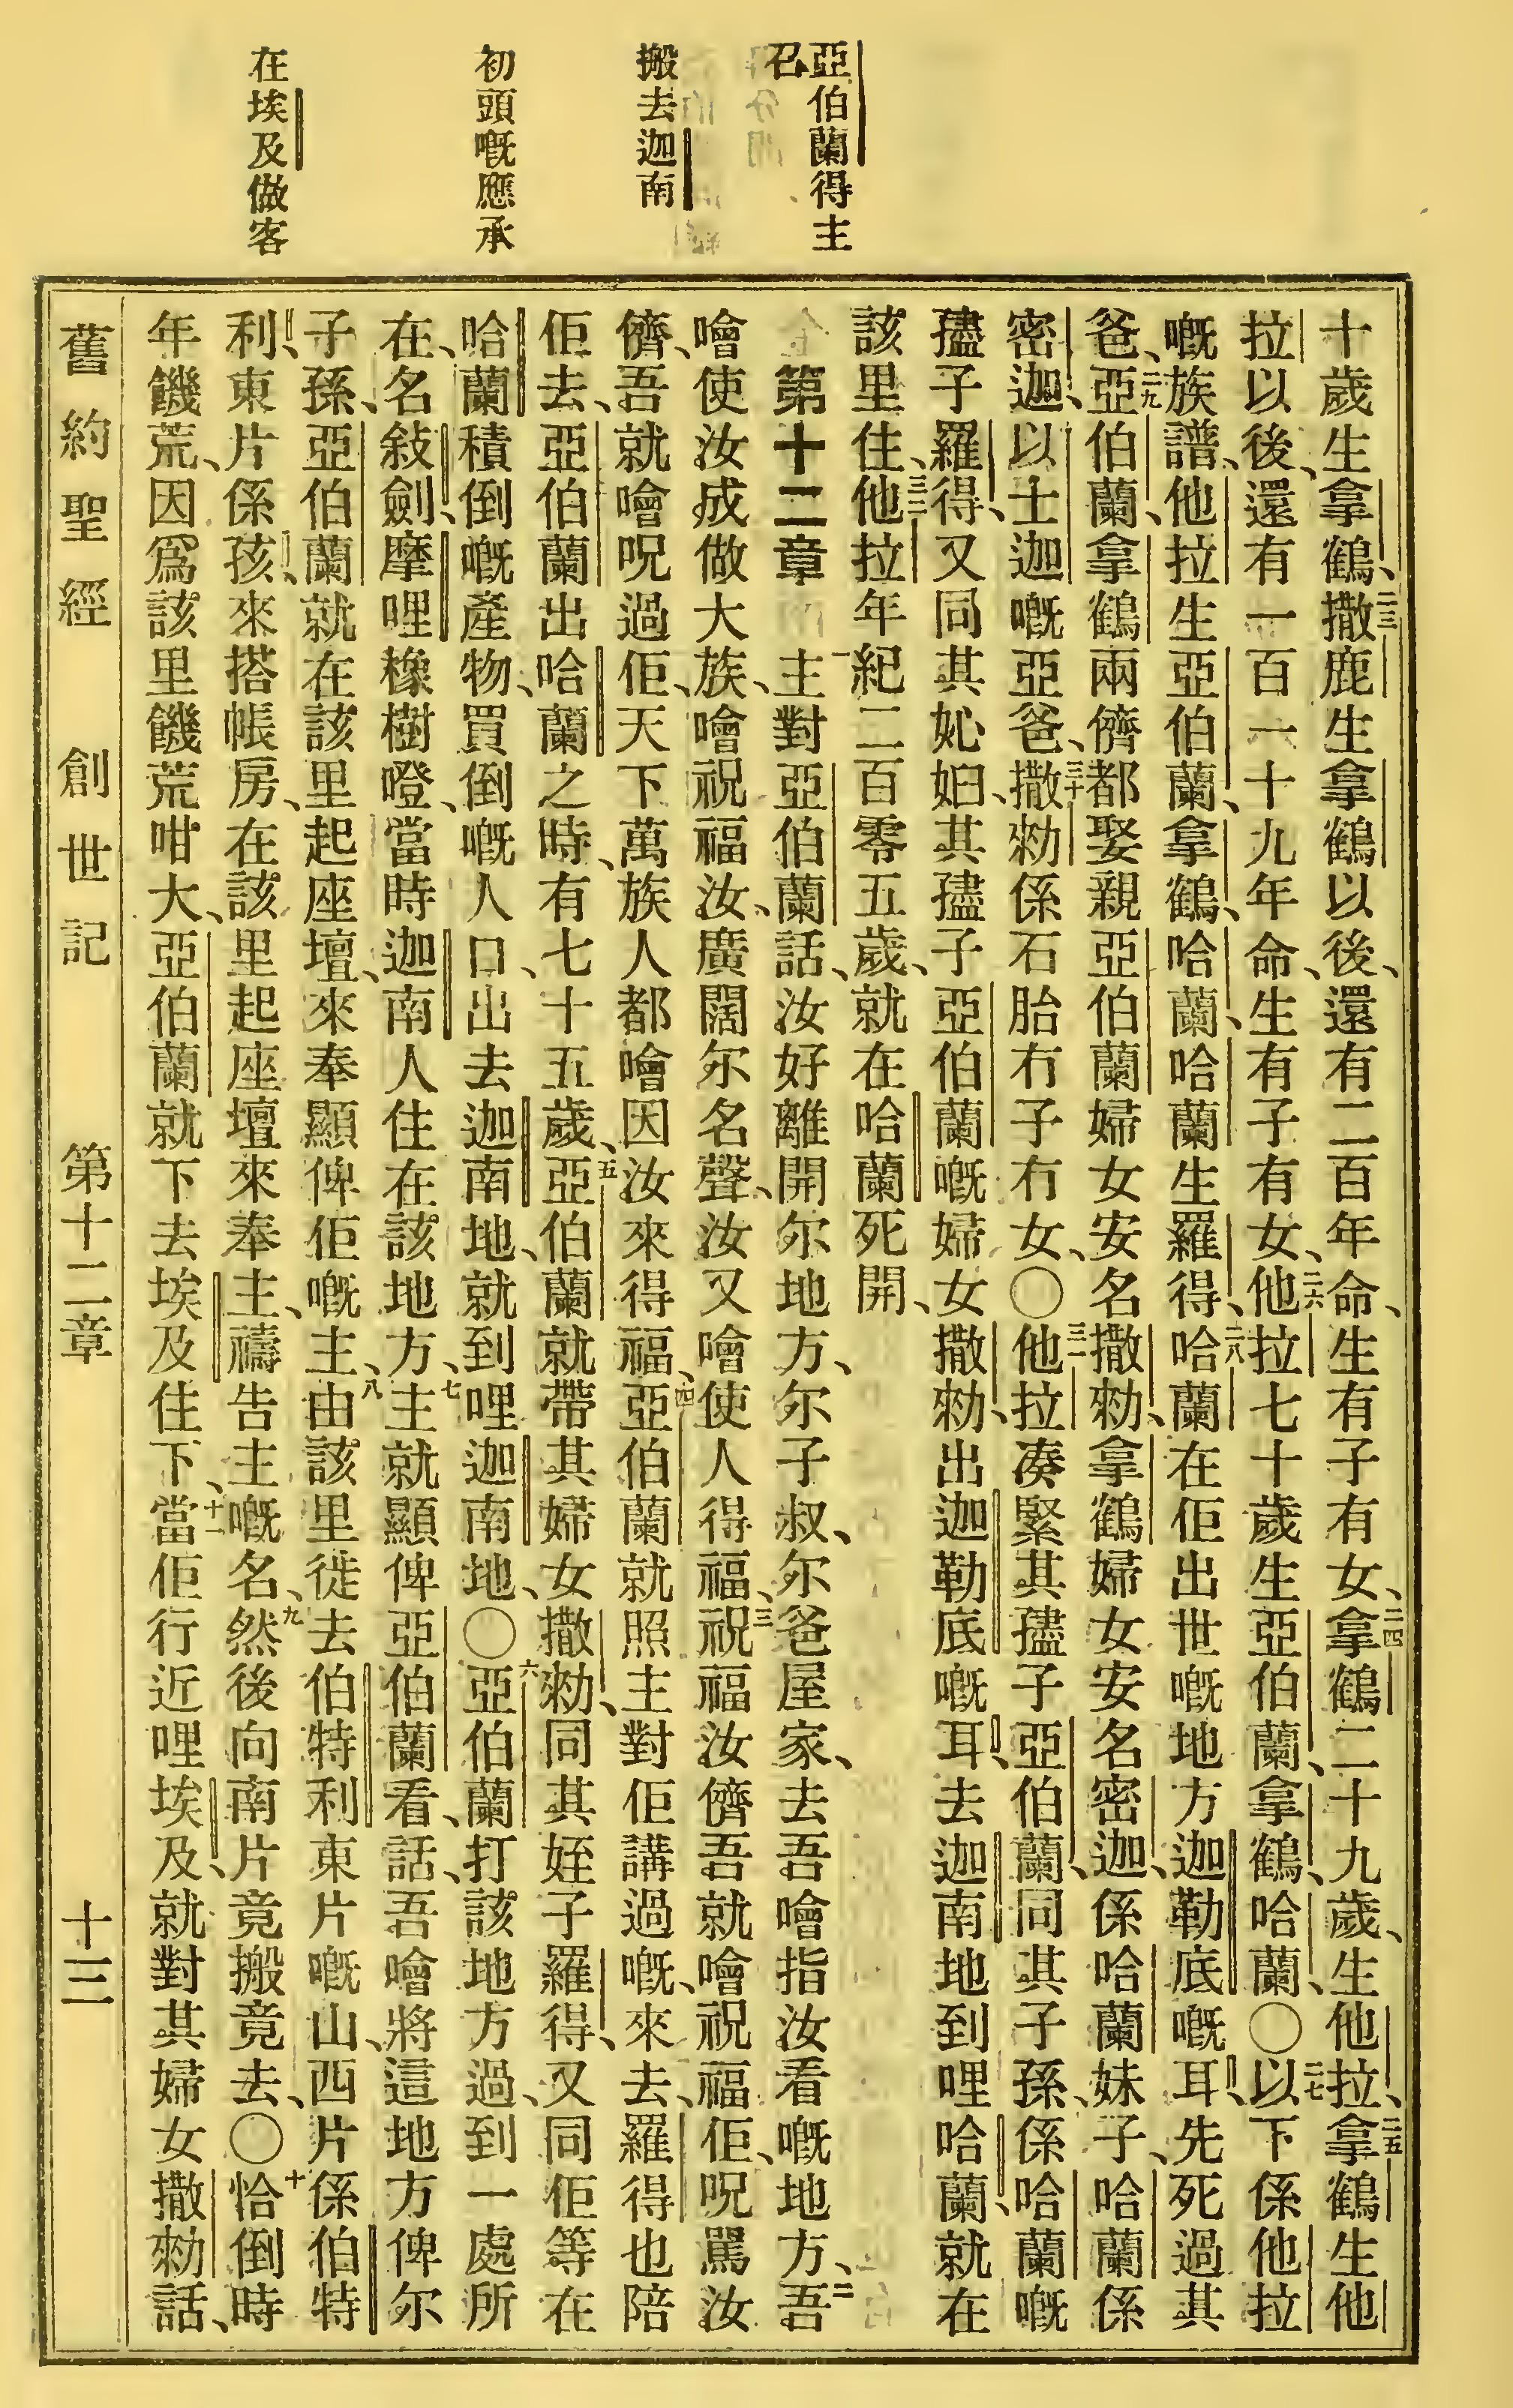 亞伯蘭得主
召
搬去迦南
初頭嘅應承
在埃及做客
十歲生拿鶴、二三撒鹿生拿鶴以後、還有二百年命、生有子有女、二四拿鶴二十九歲、生他拉、二五拿鶴生他
拉以後、還有一百一十九年命、生有子有女、二六他拉七十歲生亞伯蘭、拿鶴、哈蘭、〇二七以下係他拉
嘅族譜、他拉生亞伯蘭、拿鶴、哈蘭、哈蘭生羅得、二八哈蘭在佢出世嘅地方迦勒底嘅耳、先死過其
爸、二九亞伯蘭、拿鶴兩儕都娶親亞伯蘭婦女安名撒勑、拿鶴婦女安名密迦、係哈蘭妹子、哈蘭係
密迦、以士迦嘅亞爸、三十撒勑係石胎冇子冇女、〇三一他拉湊緊其孻子亞伯蘭、同其子孫、係哈蘭嘅
孻子羅得、又同其妣妇、其孻子亞伯蘭嘅婦女撒勑、出迦勒底嘅耳、去迦南地到哩哈蘭、就在
該里住、三二他拉年紀二百零五歲、就在哈蘭死開、
第十二章 一主對亞伯蘭話、汝好離開尔地方、尔子叔、尔爸屋家、去吾噲指汝看嘅地方、二吾
噲使汝成做大族、噲祝福汝、廣闊尔名聲、汝又噲使人得福、三祝福汝儕吾就噲祝福佢、呪駡汝
儕、吾就噲呪過佢、天下萬族人都噲因汝來得福、四亞伯蘭就照主對佢講過嘅、來去、羅得也陪
佢去、亞伯蘭出哈蘭之時、有七十五歲、五亞伯蘭就帶其婦女撒勑、同其姪子羅得、又同佢等在
哈蘭積倒嘅產物、買倒嘅人口、出去迦南地、就到哩迦南地、〇六亞伯蘭打該地方過、到一處所
在、名敍劍、摩哩橡樹嶝、當時迦南人住在該地方、七主就顯俾亞伯蘭看、話、吾噲將這地方俾尔
子孫、亞伯蘭就在該里起座壇、來奉顯俾佢嘅主、八由該里徙去伯特利東片嘅山、西片係伯特
利、東片係孩、來搭帳房、在該里起座壇來奉主、禱告主嘅名、九然後向南片竟搬竟去、〇十恰倒時
年饑荒、因爲該里饑荒咁大、亞伯蘭就下去埃及住下、十一當佢行近哩埃及、就對其婦女撒勑話、
舊約聖經 創世記 第十二章 十三